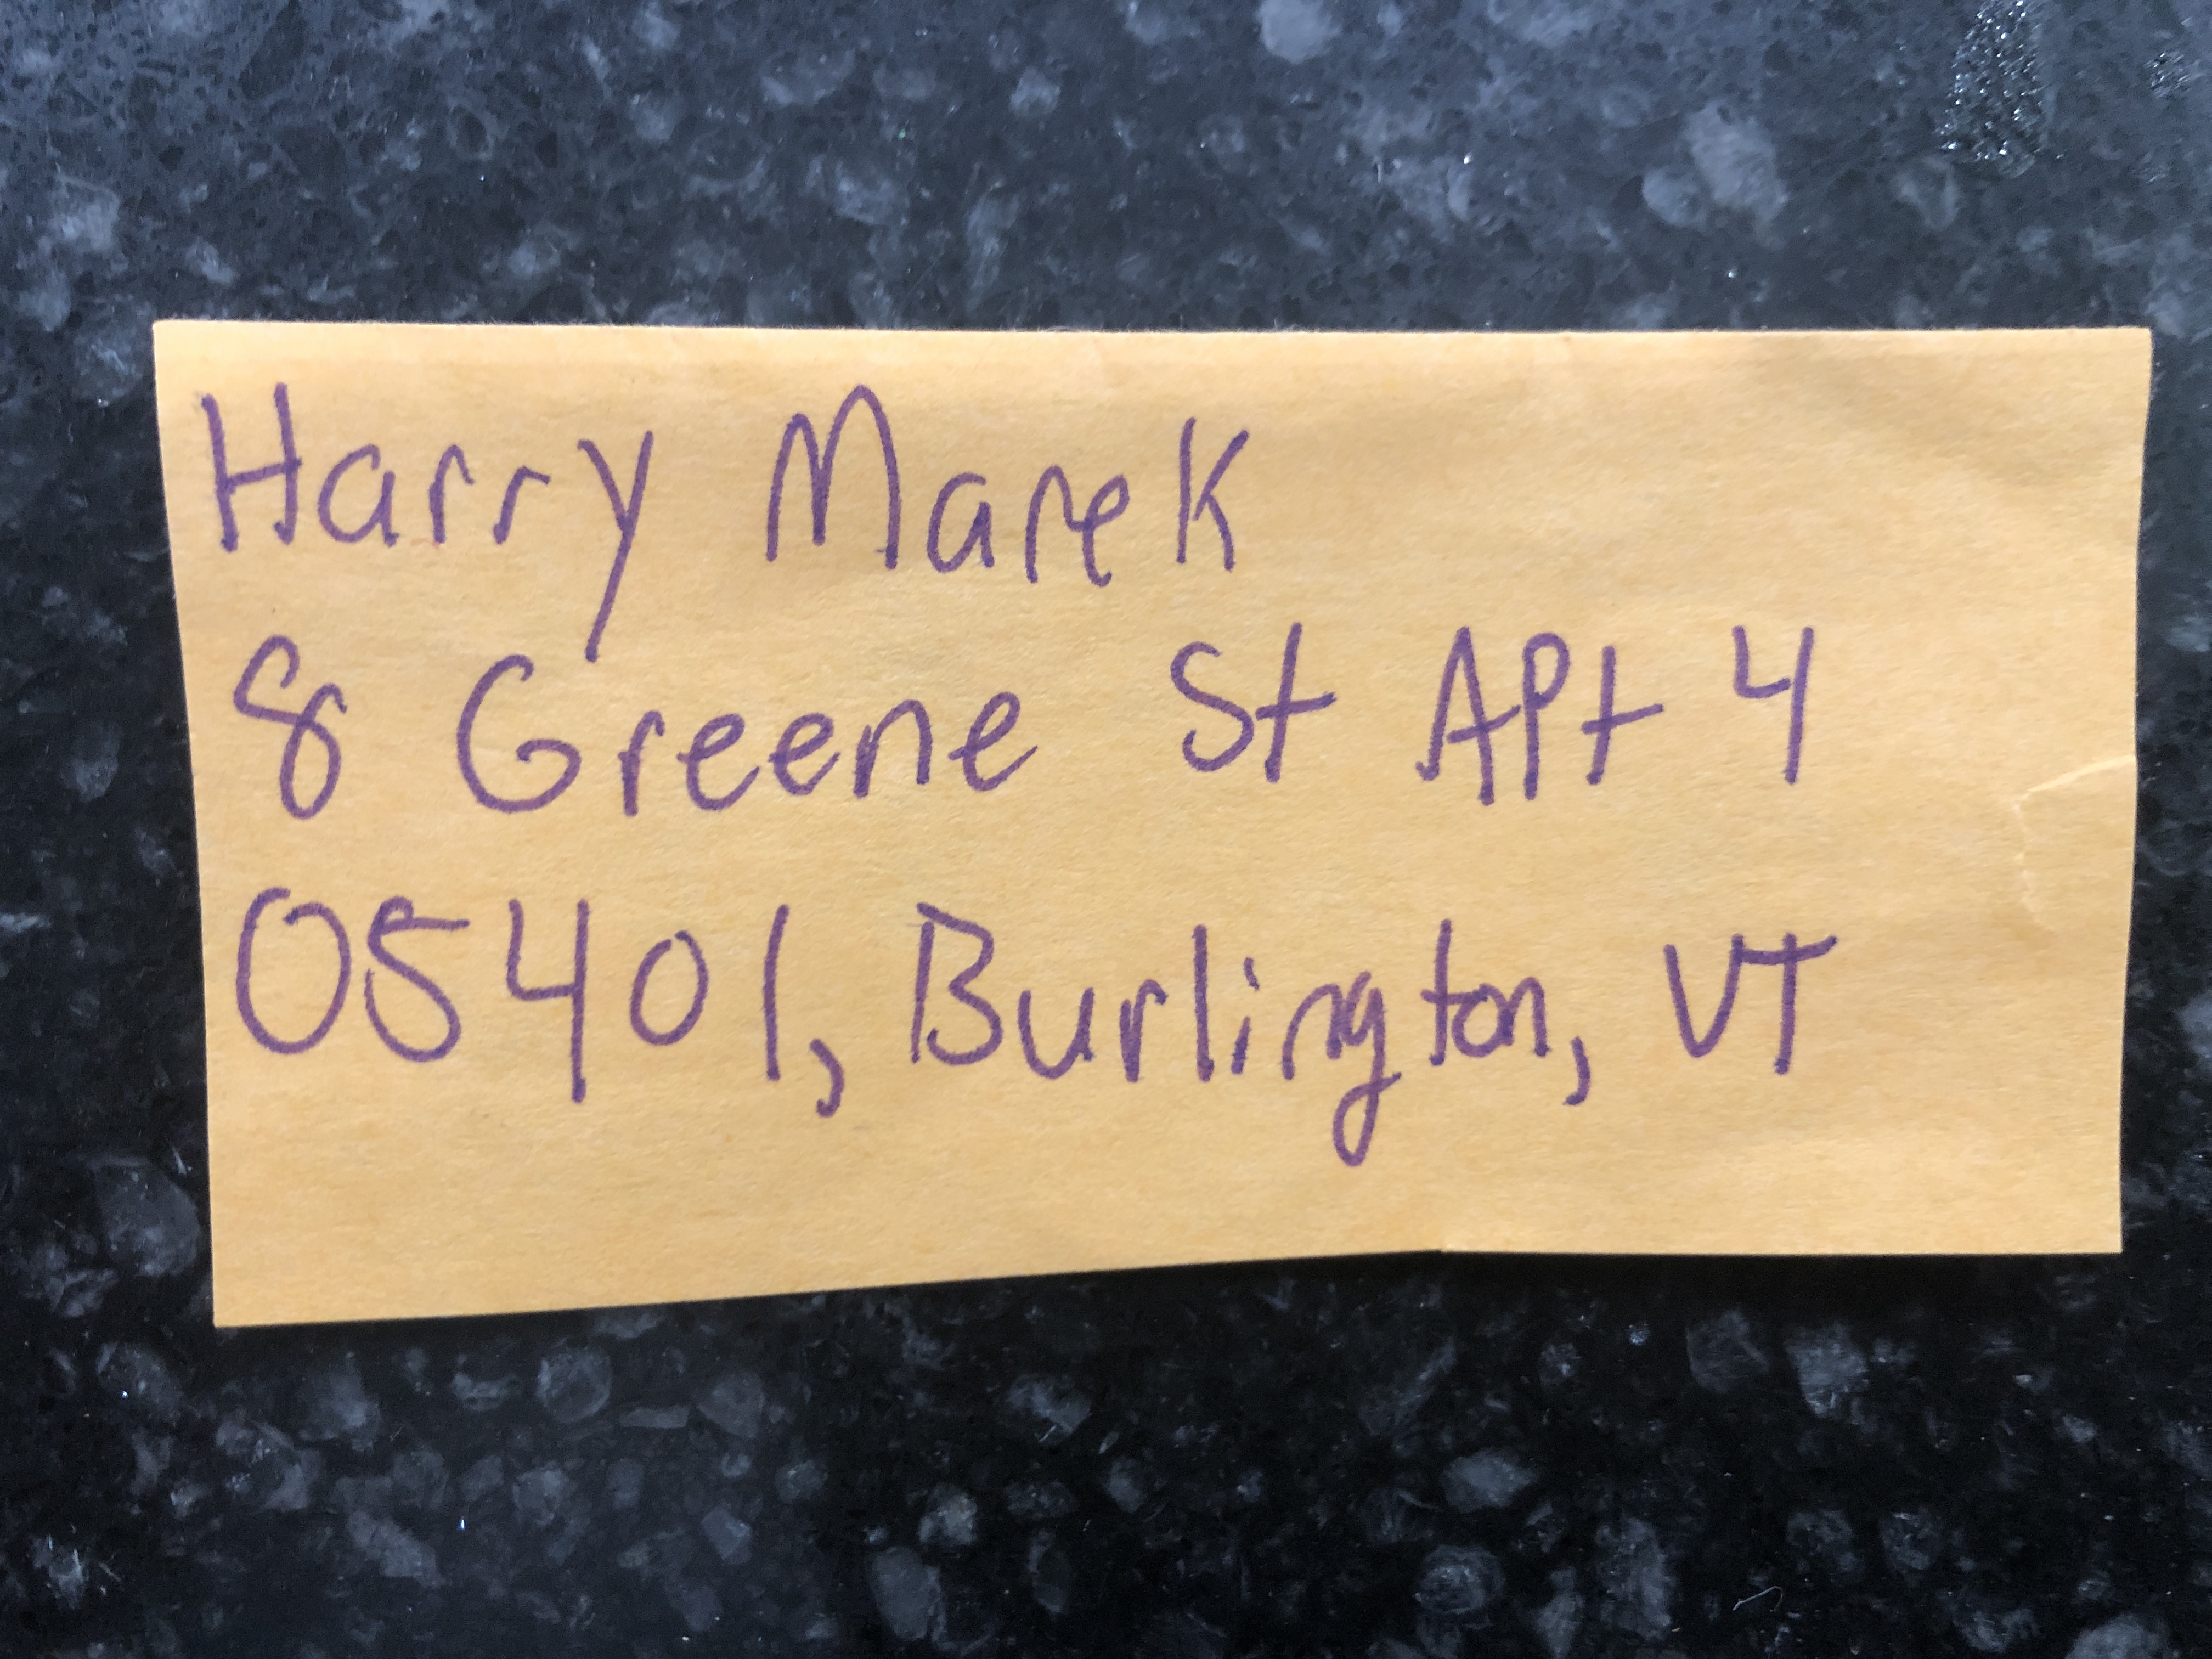 Harry Marek
8 Greene St APt 4
05401, Burlington, VT